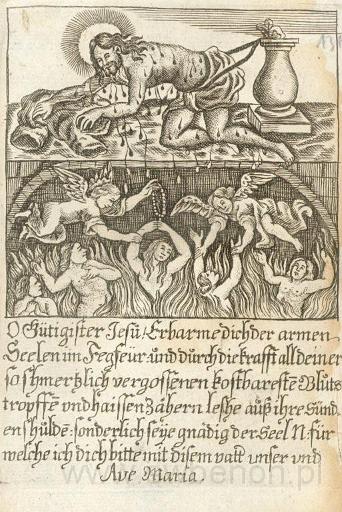 O Gütigister Jesu/ Erbarme dich der armen
Seelen im Fegfeur und durch die krafft all deiner
so schmertzlich vergossenen kostbarestē Bluts
tropffē vnd haissen Zähern leshe auß ihre Sünd-
en shülde: sonderlich seye gnädig der Seel N. für
welche ich dich bitte mit disem vatt vnser vnd
Ave Maria.